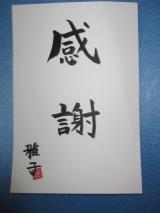 感
謝
雅子